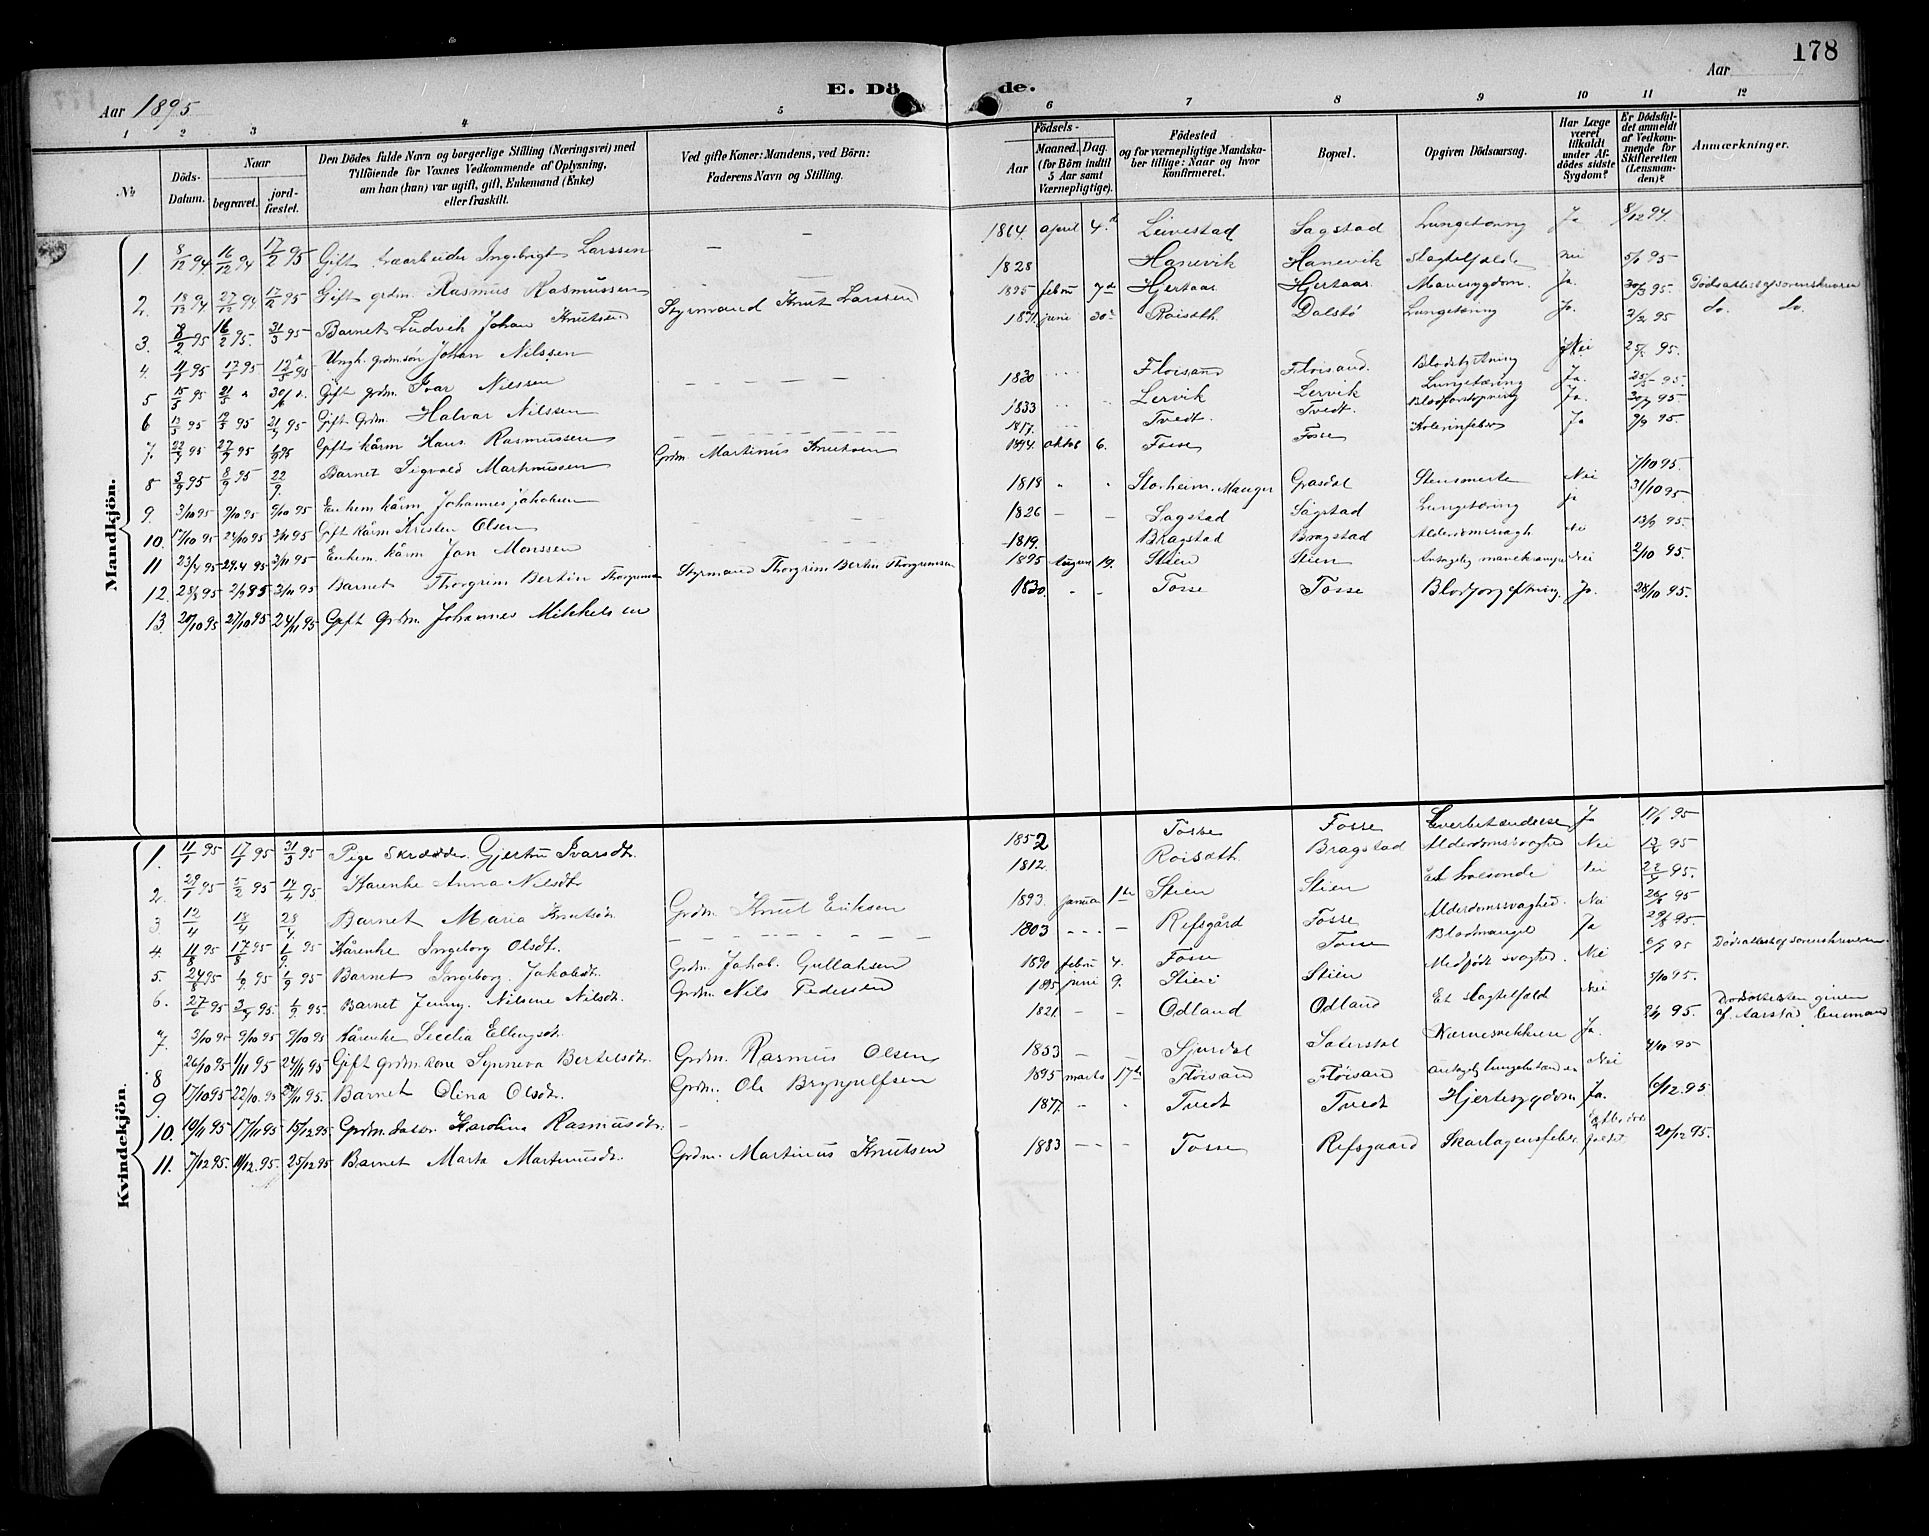 178
Aar 1895
E. Dö de.
Aar
1 2 3 4 5 6 7 8 9 10 11 12
No
Döds-Datum.
Naar
begravet.
jord-fæstet.
Den Dödes fulde Navn og borgerlige Stilling (Næringsvei) med
Tilföiende for Voxnes Vedkommende af Oplysning,
om han (hun) var ugift, gift, Enkemand (Enke)
eller fraskilt.
Ved gifte Koner: Mandens, ved Börn:
Faderens Navn og Stilling.
Födsels-
Aar
Maaned. Dag.
(for Börn indtil
5 Aar samt
Værnepligtige).
Födested
og for værnepligtige Mandska-
ber tillige: Naar og hvor
konfirmeret.
Bopæl.
Opgiven Dödsaarsag.
Har Læge
været
tilkaldt
under Af-
dödes sidste
Sygdom?
Er Dödsfal-
det anmeldt
af Vedkom-
mende for
Skifteretten
(Lensman-
den)?
Anmærkninger.
Mandkjön.
1. 8/12 94 16/12 94 17/2 95 Gift Ingebrigt Larssen — — 1864 april 4 Leivestad Sagstad Lungetæring Ja 8/12 94.
2. 18/12 94 27/12 94 17/2 95 Gift grdm. Rasmus Rasmussen — — 1828 Hanevik Hanevik Slagtilfælde Nei 5/1 95
3. 8/2 95 16/2 95. 31/3 95 Barnet Ludvik Johan Knutsen Styrmand Knut Larssen 1895 febru 7de Hjertaas Hjertaas Mavesygdom Ja. 30/3 95. Dødsattest af sorenskriveren
4. 17/5 95 Ungk. grdm.søn Johan Nilssen 1871 juni 30 Roisæth Dalstø Lungetæring Ja. 2/2 95 do. do.
5 15/5 95 21/5 Gift grdm. Ivar Nilssen — — — — 1830 Floisand Floisand. Blodsbrytning Nei 25/5 95.
6 95 95 95 Gift Grdm. Halvar Nilssen 1833 Lervik Lervik Lungetæring Ja. 25/5 95.
7. 95 27/7 95 95 Gift kårm Hans Rasmussen — — — — 1817. Tvedt. Tvedt. Blodforstopning Ja. 95
8 3/9 95 8/9 95 22/9. Barnet Sigvald Martinussen Grdm. Martinus Knutsen 1894. oktob 6. Fosse Fosse Kolerinfeber Ja 9/9 95
9. 3/10 95 9/10 95 9/10 95 Enkem kårm Johannes Jakobsen 1818 Storheim. Manger Grasdal Stensmerte Nei 7/10 95.
10. 17/10 95 24/10 95 3/11 95 Gift kårm Kristen Olsen 1826 — — Sagstad Sagstad Lungetæring ja 31/10 95
11 23/4 95 29.4 95 3/11 95 Enkem. kårm Jon Monssen 1819. Bragstad Bragstad Alderdomssvagh Nei 95.
12. 28/8 95 2/9 95 3/11 95 Barnet Thorgrim Bertin Thorgrimsen Styrmand Thorgrim Bertin Thorgrimssen 1895 August 19. Stien Stien Nei 2/10 95
13. 20/10 95 27/10 95 24/11 95 Gift Grdm. Johannes Mikkelsen 1830. Fosse Fosse Blodforgiftning, Ja. 28/10 95.
Kvindekjön.
1. 11/1 95 17/1 95 31/3 95 Pige Skrædder Gjertru Ivarsdt. 1852 Fosse Fosse Leverbetændelse Ja 17/1 95
2. 29/1 95 5/2 95 17/4 95 Kårenke Anna Nilsdt. 1812. Roisæth. Bragstad Alderdomssvaghed Nei 95
3 12/4 18/4 28/4. Barnet Maria Knutsdt. Grdm. Knut Eriksen 1893. Janua 1te Stien Stien Et halsonde Nei 22/4 95.
4. 11/8 95 17/8 95 1/9. 95 Kårenke Ingeborg Olsdt. — — — — 1803 — — — Refsgård Fosse Alderdomssvaghed. Nei 95
5. 24/8 95. 1/9 95 1/9 95 Barnet Ingeborg. Jakobsdt. Grdm. Jakob. Gullaksen 1890 febru 4. Fosse Fosse Blodmangel Ja 95.
6. 27/6 95 95. 1/9. 95 Barnet Jenny Nilsine Nilsdt. Grdm. Nils Pedersen 1895 juni 9. Stien Stien Medfødt svaghed. Nei 95 Dødsattest af sorenskriveren
7. 3/10 95 9/10 95 9/10 95 Kårenke Secelia Ellingsdt. 1821. — — Odland Odland Et slagtilfæld Nei 5/10 95.
8 26/10 95 1/11 95 24/11 95 Gift grdm kone Synneva Bertelsdt. Grdm. Rasmus Olsen 1853 — — Sjurdal Sæterstøl Nærvesvekkelse Ja. 95. Dødsattesten given af Aarstad, lensmand
9 17/10 95 22/10. 95 24/11 95. Barnet Olina Olsdt. Grdm. Ole Brynjulfsen 1895 marts 17de Floisand Floisand Nei 4/10 95
10. 10/11 95 17/11 95 15/12 95 Grdm. datter Karolina Rasmusdt. — 1877 — Tvedt Tvedt Hjertesygdom Ja. 6/12. 95.
11. 7/12 95. 11/12. 95. 25/12 95 Barnet Marta Martinusdt. Grdm. Martinus Knutsen 1883 — — — Fosse Refsgaard Skarlagensfeber 20/12 95.